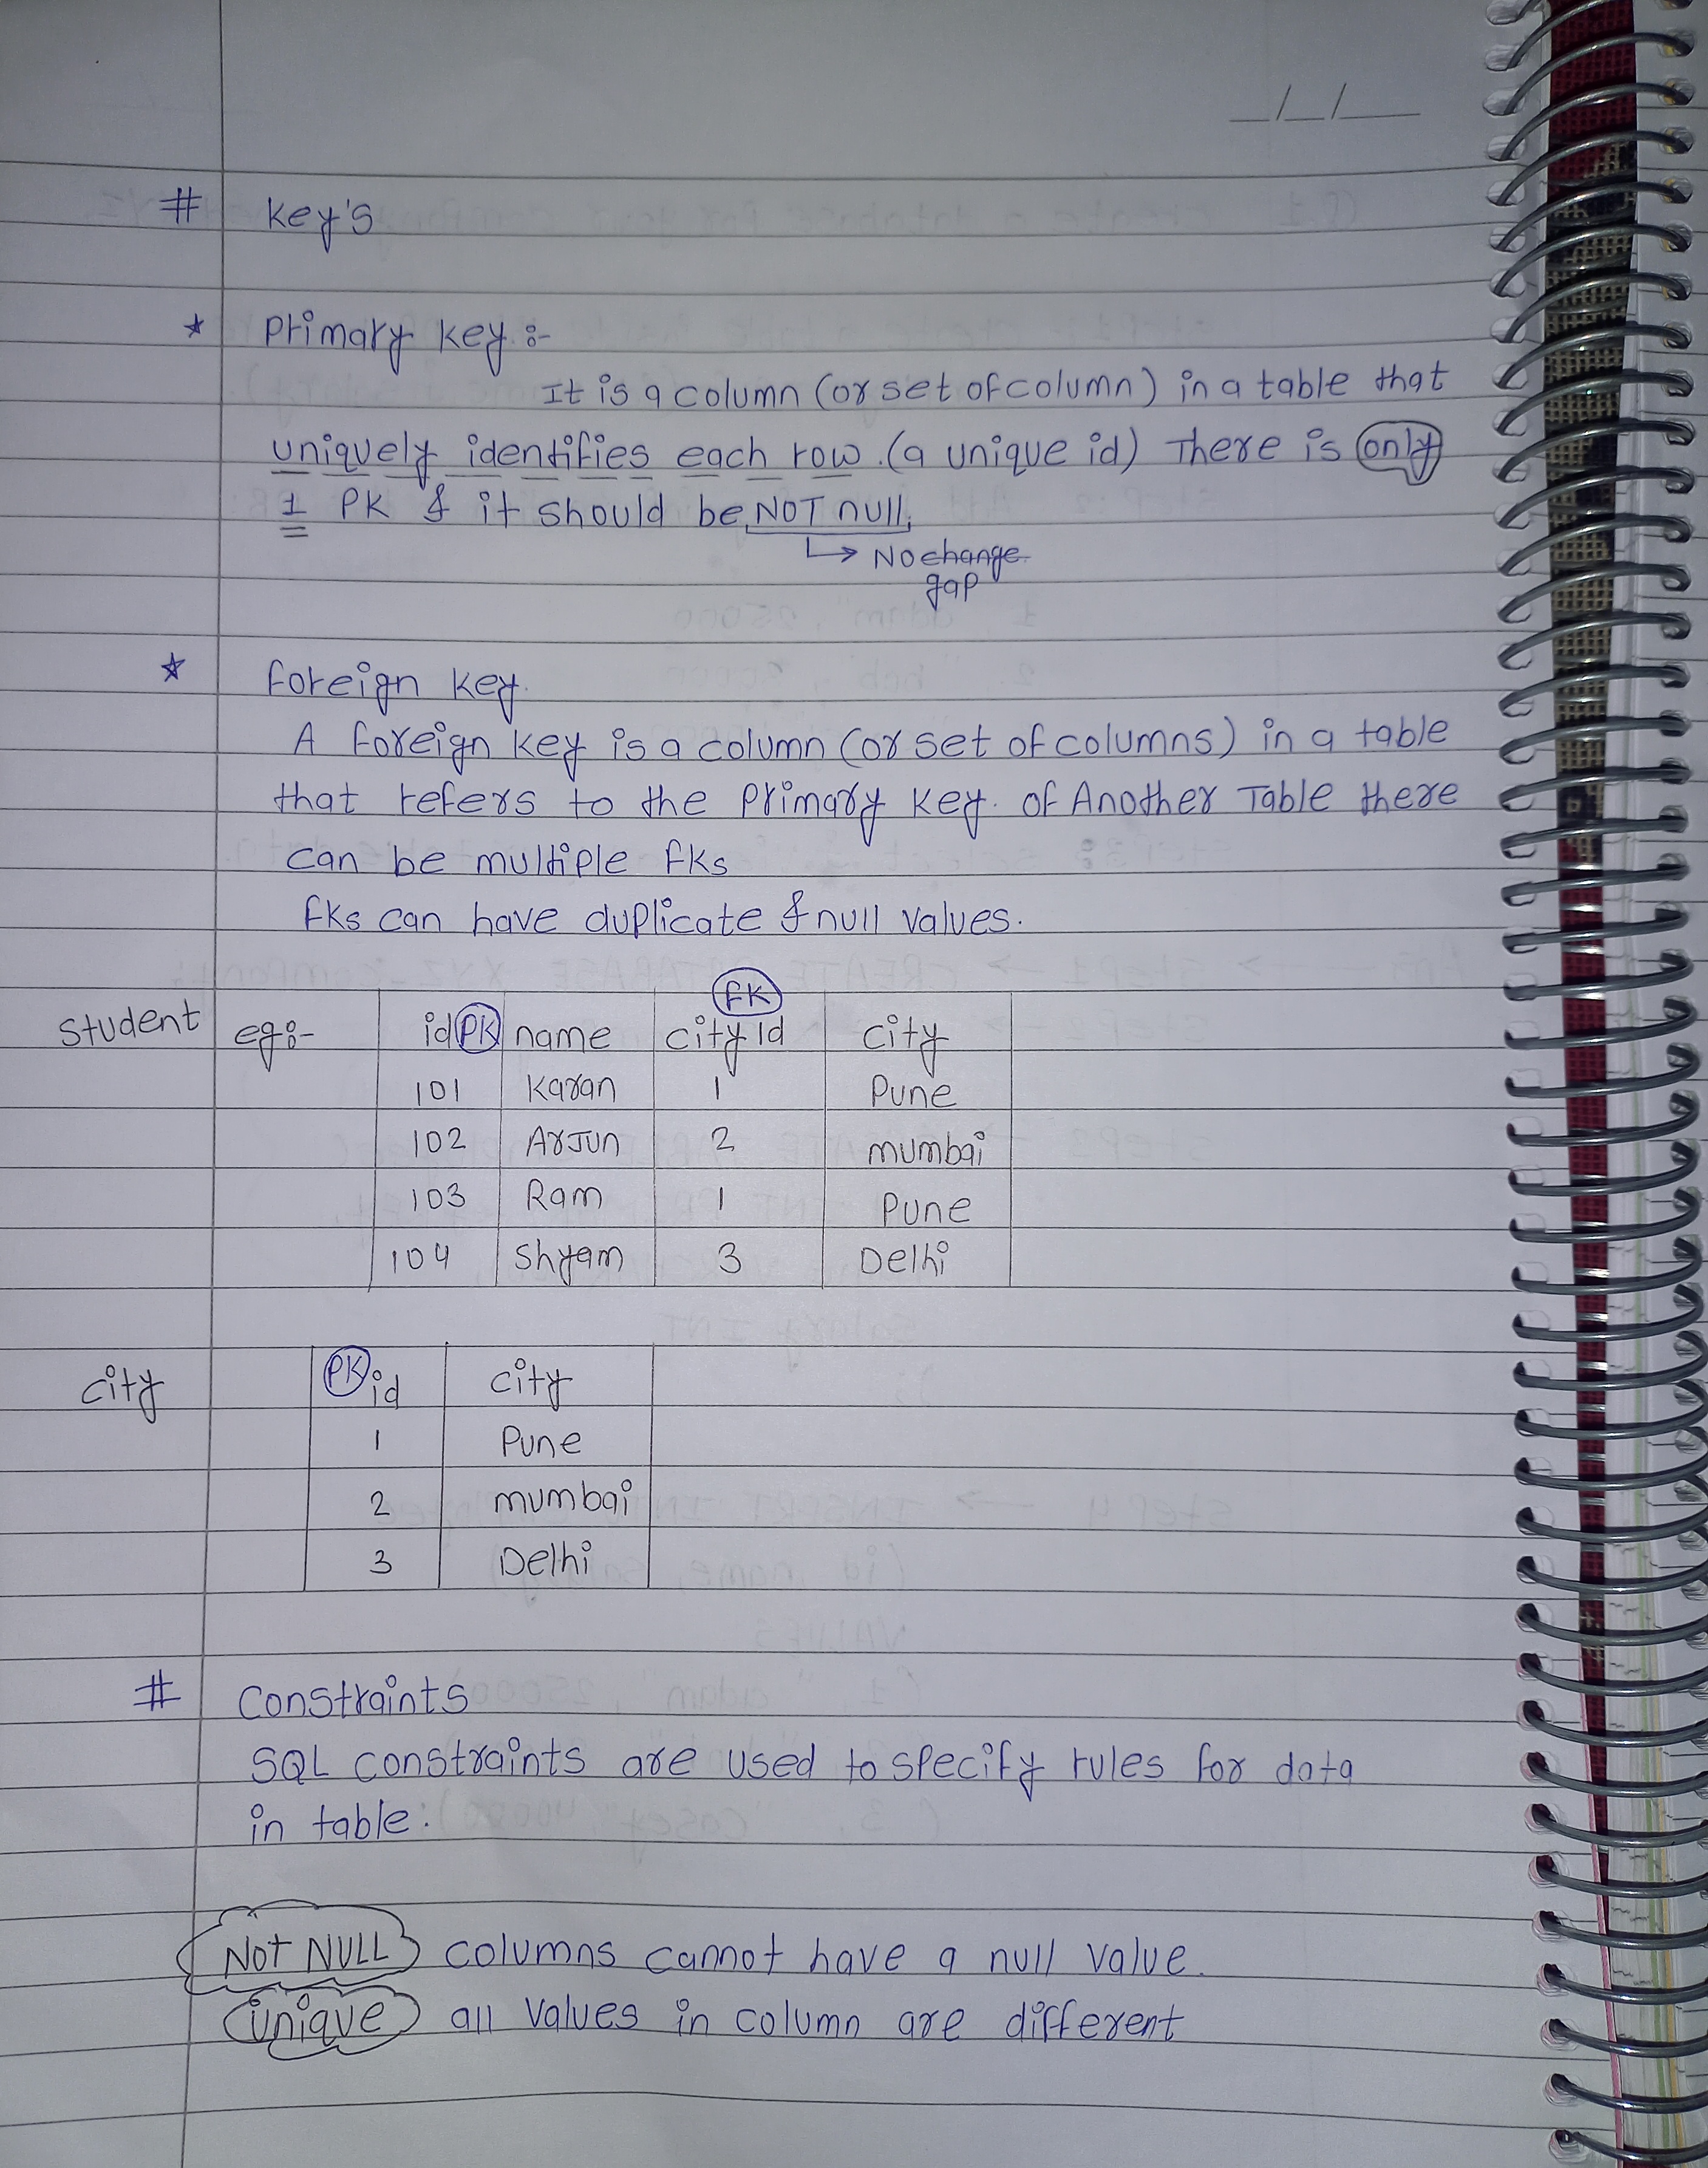 _/_/__
# Key's
* Primary Key :-
It is a column (or set of column) in a table that
uniquely identifies each row. (a unique id) There is only
1 PK & it should be NOT null.
↳ No change
gap
* foreign key.
A foreign key is a column (or set of columns) in a table
that refers to the primary key. of Another Table there
can be multiple fks
fks can have duplicate & null values.
FK
Student eg:- id PK name city Id city
101 Karan 1 Pune
102 Arjun 2 mumbai
103 Ram 1 Pune
104 Shyam 3 Delhi
city PK id city
1 Pune
2 mumbai
3 Delhi
# Constraints
SQL constraints are used to specify rules for data
in table.
NOT NULL columns cannot have a null value.
unique all values in column are different